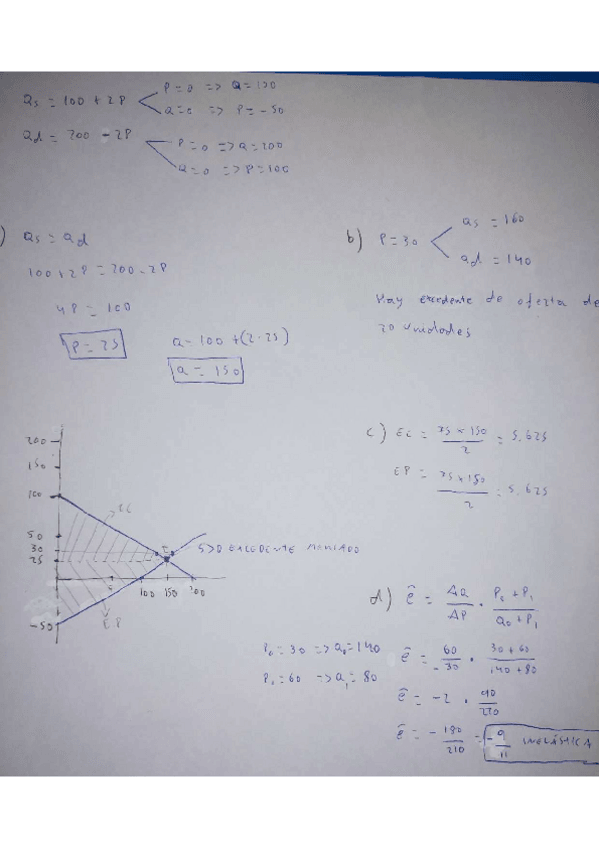 Qs = 100 + 2P
P=0 => Q=100
Q=0 => P=-50
Qd = 200 - 2P
P=0 => Q=200
Q=0 => P=100
) Qs = Qd
100+2P = 200-2P
4P = 100
P = 25
Q = 100 + (2·25)
Q = 150
b) P=30
Qs = 160
Qd = 140
Hay excedente de oferta de
20 unidades
c) EC = 75 x 150 / 2 = 5.625
EP = 75 x 150 / 2 = 5.625
200
150
100
50
30
25
-50
100 150 200
EC
E
S>D EXCEDENTE MERCADO
EP
d) ê = ΔQ/ΔP · P₀+P₁/Q₀+P₁
P₀=30 => Q₀=140
P₁=60 => Q₁=80
ê = 60/-30 · 30+60/140+80
ê = -2 · 90/220
ê = -180/220 = -9/11 INELÁSTICA